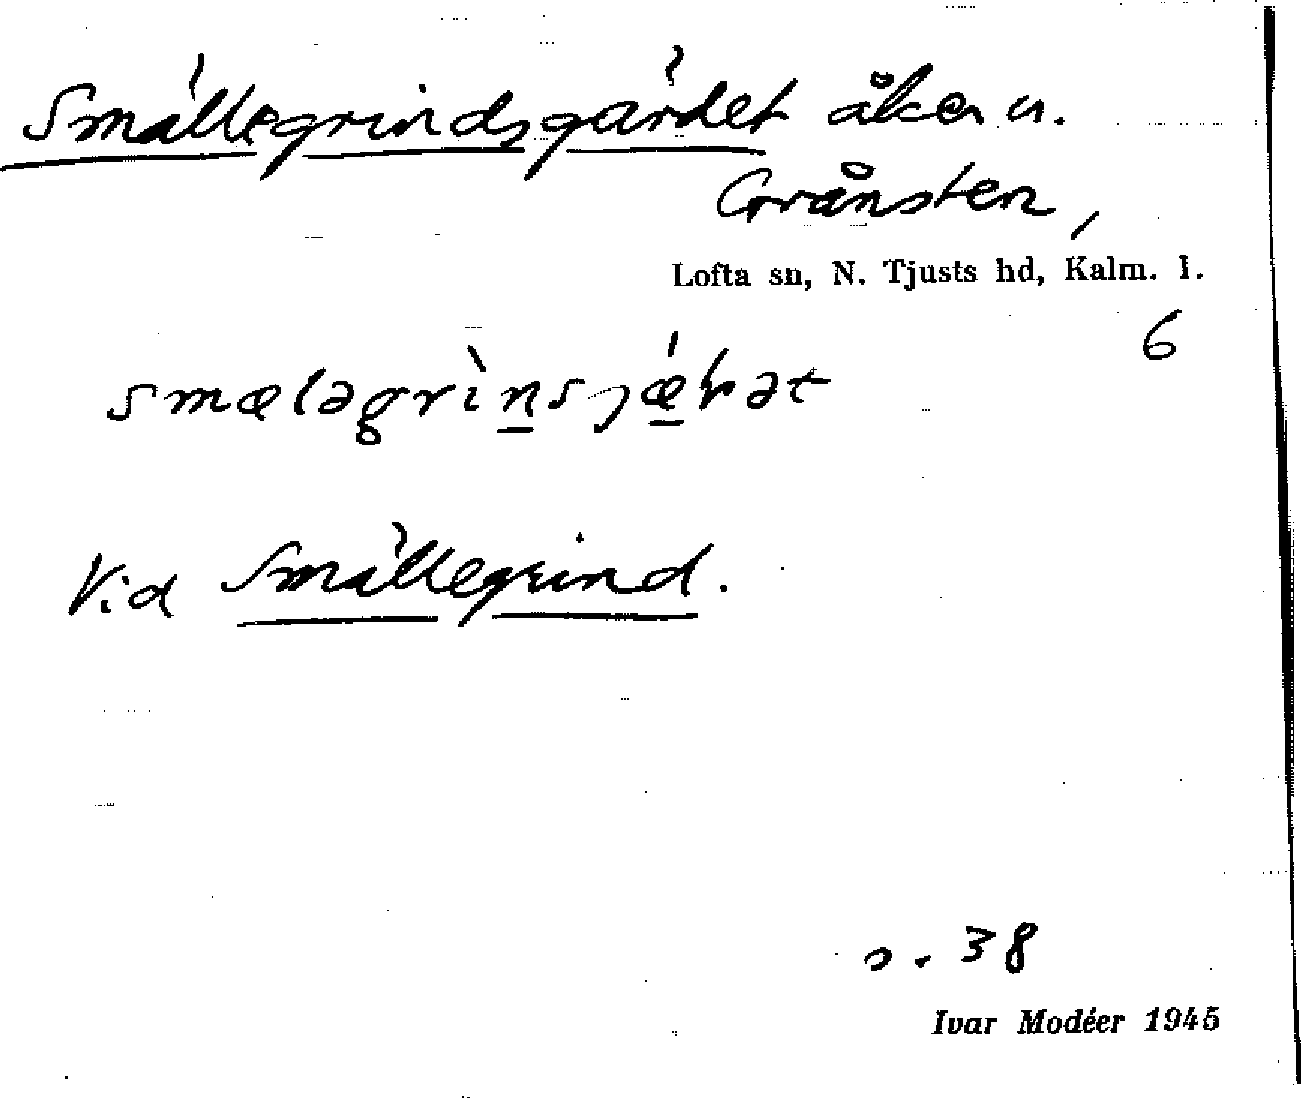 Smällegrindsgärdet åker u.
Grånsten,
Lofta sn, N. Tjusts hd, Kalm. l.
6
smælǝgrìnsjǽṛǝt
Vid Smällegrind.
s. 38
Ivar Modéer 1945